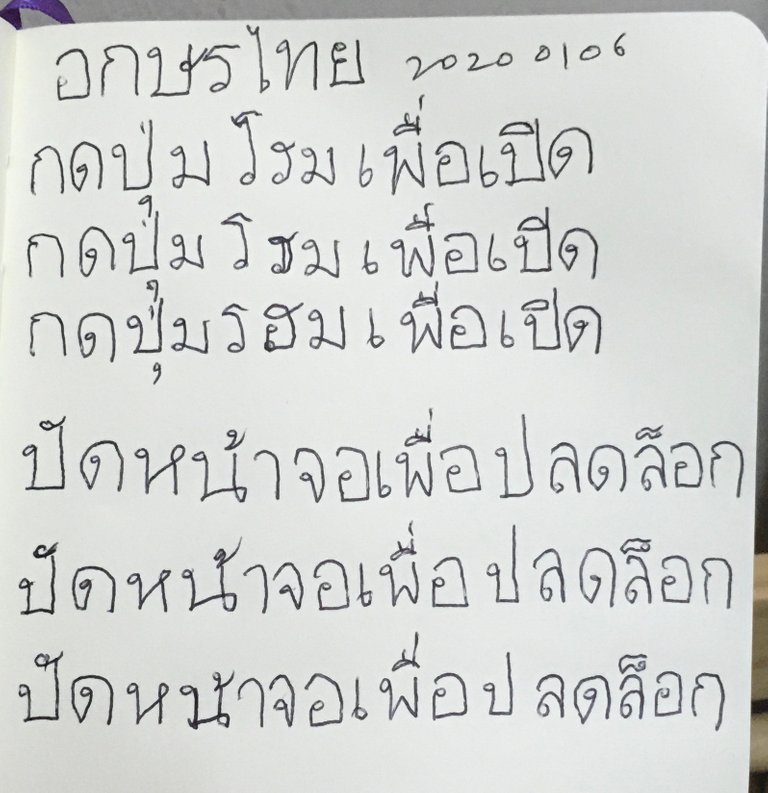 อกษรไทย 20200106
กดปุ่มโฮมเพื่อเปิด
กดปุ่มโฮมเพื่อเปิด
กดปุ่มโฮมเพื่อเปิด
ปัดหน้าจอเพื่อปลดล็อก
ปัดหน้าจอเพื่อปลดล็อก
ปัดหน้าจอเพื่อปลดล็อก